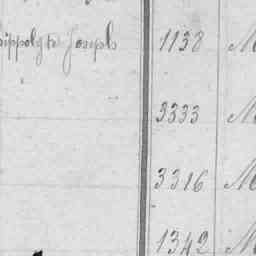 hippolyte Joseph 1138 M
3333 M
3316 M
1342 M